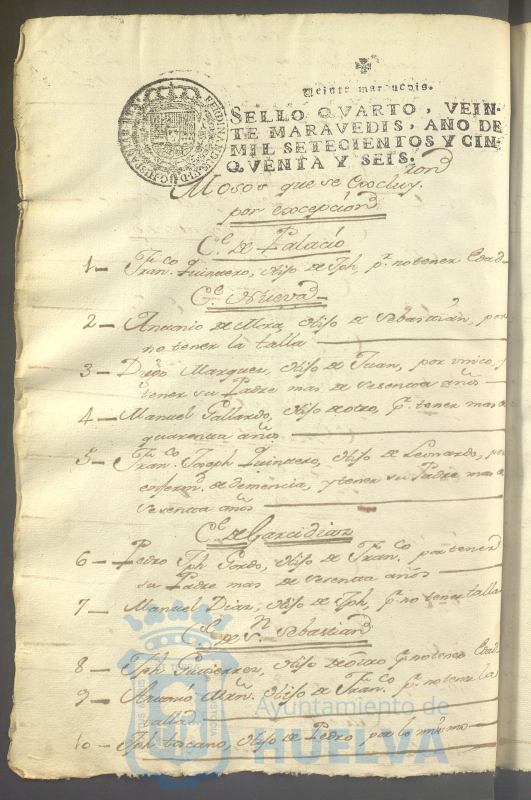 Veinte maravedis.
SELLO QVARTO, VEIN-
TE MARAVEDIS, AÑO DE
MIL SETECIENTOS Y CIN-
QVENTA Y SEIS.
Mosos que se Excluy.ron
por excepcion
C.e de Palacio
1- Fran.co Quintero, Hijo de Jph, p.r no tener Edad
C.e Nueva
2- Antonio de Mora, Hijo de Sebastian, por
no tener la talla
3- Diego Marques, Hijo de Juan, por unico, y
tener su Padre mas de sesenta años
4- Manuel Gallardo, Hijo de otro, p.r tener mas de
quarenta años
5- Fran.co Joseph Quintero, Hijo de Leonardo, por
enferm.d de demencia, y tener su Padre mas de
sesenta años
C.e de Garcidiaz
6- Pedro Jph Gordo, Hijo de Fran.co por tener
su Padre mas de sesenta años
7- Manuel Dias, Hijo de Jph, p.r no tener talla
C.e de S.n Sebastian
8- Jph Gutierrez, Hijo de otro p.r no tener Edad
9- Antonio Mrñ. Hijo de Fran.co p.r no tener la
talla
10- Jph Toscano, Hijo de Pedro, por lo mismo
Ayuntamiento de
HUELVA